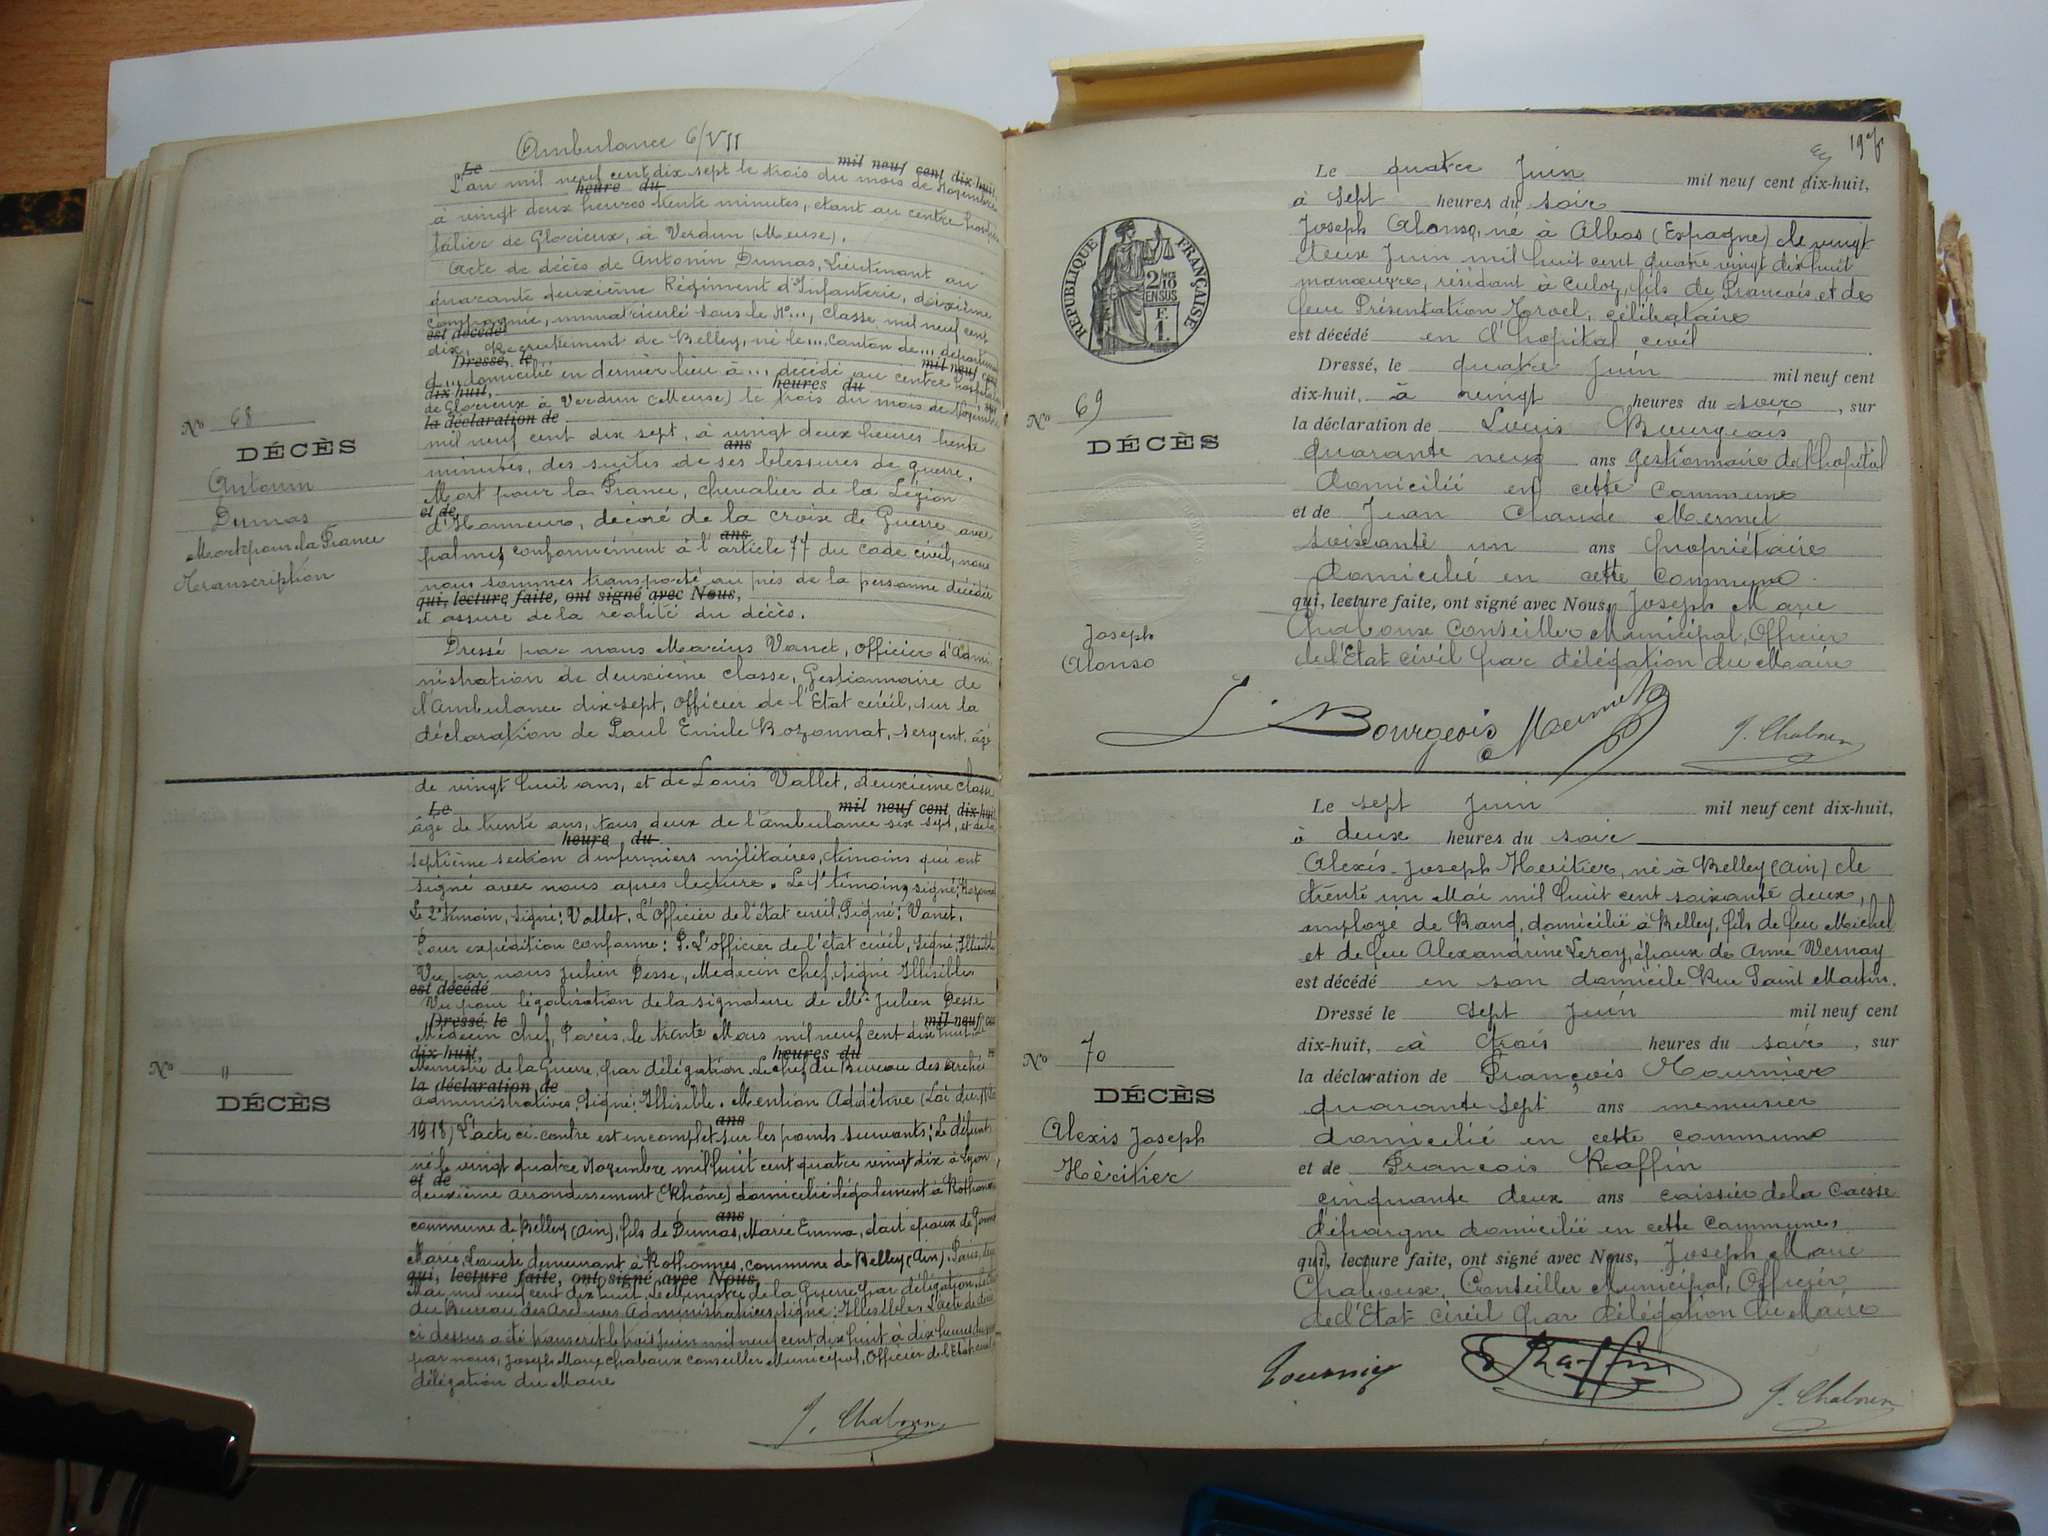 Ambulance 6/VII
Le mil neuf cent dix-huit,
L'an mil neuf cent dix sept le trois du mois de Novembre
heure du
à vingt deux heures trente minutes, étant au centre hospi
talier de Glorieux, à Verdun (Meuse).
Acte de décès de Antonin Dumas, Lieutenant au
quarante deuxième Régiment d'Infanterie, dixième
compagnie, immatriculé sous le No..., classe mil neuf cent
est décédé
dix, Recrutement de Belley, né le... canton de... département
Dressé, le mil neuf cent
d... domicilié en dernier lieu à ... décédé au centre hospitalier
dix-huit, heures du
de Glorieux à Verdun (Meuse) le trois du mois de Novembre
la déclaration de
mil neuf cent dix sept, à vingt deux heures trente
ans
minutes, des suites de ses blessures de guerre.
Mort pour la France, chevalier de la Légion
et de
d'Honneur, décoré de la croix de Guerre avec
ans
palmes, conformément à l'article 77 du code civil, nous
nous sommes transporté au près de la personne décédée
qui, lecture faite, ont signé avec Nous,
et assuré de la réalité du décès.
Dressé par nous Marius Vanet, officier d'admi
nistration de deuxième classe, Gestionnaire de
l'Ambulance dix sept, officier de l'Etat civil, sur la
déclaration de Paul Emile Bozonnat, sergent, âgé
No 68
DÉCÈS
Antonin
Dumas
Mort pour la France
Transcription
de vingt huit ans, et de Louis Vallet, deuxième classe
Le mil neuf cent dix-huit
âgé de trente ans, tous deux de l'ambulance six sept, et de la
heure du
septième section d'infirmiers militaires, témoins qui ont
signé avec nous après lecture. Le 1er témoin, signé: Bozonnat
Le 2e témoin, signé: Vallet. L'Officier de l'état civil, Signé: Vanet.
Pour expédition conforme: P. L'officier de l'état civil, signé, Illisible
Vu par nous Julien Desse, Médecin chef, signé Illisible
est décédé
Vu pour légalisation de la signature de Mr Julien Desse
Dressé le mil neuf cent
Médecin chef, Paris, le trente Mars mil neuf cent dix huit
dix-huit, heures du
Ministre de la Guerre, par délégation, Le chef du Bureau des Archives
la déclaration de
administratives, signé: Illisible. Mention Additive (Loi du
ans
1918) L'acte ci-contre est incomplet sur les points suivants: Le défunt
né le vingt quatre Novembre mil huit cent quatre vingt dix à Lyon,
et de
deuxième arrondissement (Rhône) domicilié légalement à Rothonod
ans
commune de Belley (Ain), fils de Dumas, Marie Emma, était époux de
Marie, Louise demeurant à Rothonnes, commune de Belley (Ain). Paris, le
qui, lecture faite, ont signé avec Nous,
Mai mil neuf cent dix huit, Le Ministre de la Guerre par délégation, Le Chef
du Bureau des Archives Administratives, signé: Illisible. L'acte de décès
ci dessus a été transcrit le trois Juin mil neuf cent dix huit à dix heures du
par nous, Joseph Marie Chaboux conseiller Municipal, Officier de l'Etat civil
délégation du Maire
J. Chaboux
No 11
DÉCÈS
Le quatre Juin mil neuf cent dix-huit,
à sept heures du soir
Joseph Alonso, né à Albos (Espagne) le vingt
deux Juin mil huit cent quatre vingt dix huit
manœuvre, résidant à Culoz, fils de François, et de
feue Présentation Torvel, célibataire
est décédé en l'hopital civil
Dressé, le quatre Juin mil neuf cent
dix-huit, à vingt heures du soir, sur
la déclaration de Louis Bourgeois
quarante neuf ans gestionnaire de l'hopital
domicilié en cette commune
et de Jean Claude Mermet
soixante un ans propriétaire
domicilié en cette commune.
qui, lecture faite, ont signé avec Nous, Joseph Marie
Chaboux Conseiller Municipal, Officier
de l'Etat civil par délégation du Maire
L. Bourgeois Mermet J. Chaboux
RÉPUBLIQUE FRANÇAISE
2/10 EN SUS
F.
1.
No 69
DÉCÈS
Joseph
Alonso
Le sept Juin mil neuf cent dix-huit,
à deux heures du soir
Alexis Joseph Heritier, né à Belley (Ain) le
trente un Mai mil huit cent soixante deux,
employé de Banq, domicilié à Belley, fils de feu Michel
et de feue Alexandrine Leroy, époux de Anne Vernay
est décédé en son domicile Rue Saint Martin.
Dressé le sept Juin mil neuf cent
dix-huit, à trois heures du soir, sur
la déclaration de François Tournier
quarante sept ans menuisier
domicilié en cette commune
et de François Raffin
cinquante deux ans caissier de la Caisse
d'épargne domicilié en cette commune
qui, lecture faite, ont signé avec Nous, Joseph Marie
Chaboux, Conseiller Municipal, Officier
de l'Etat civil par délégation du Maire
Tournier Raffin J. Chaboux
No 70
DÉCÈS
Alexis Joseph
Héritier